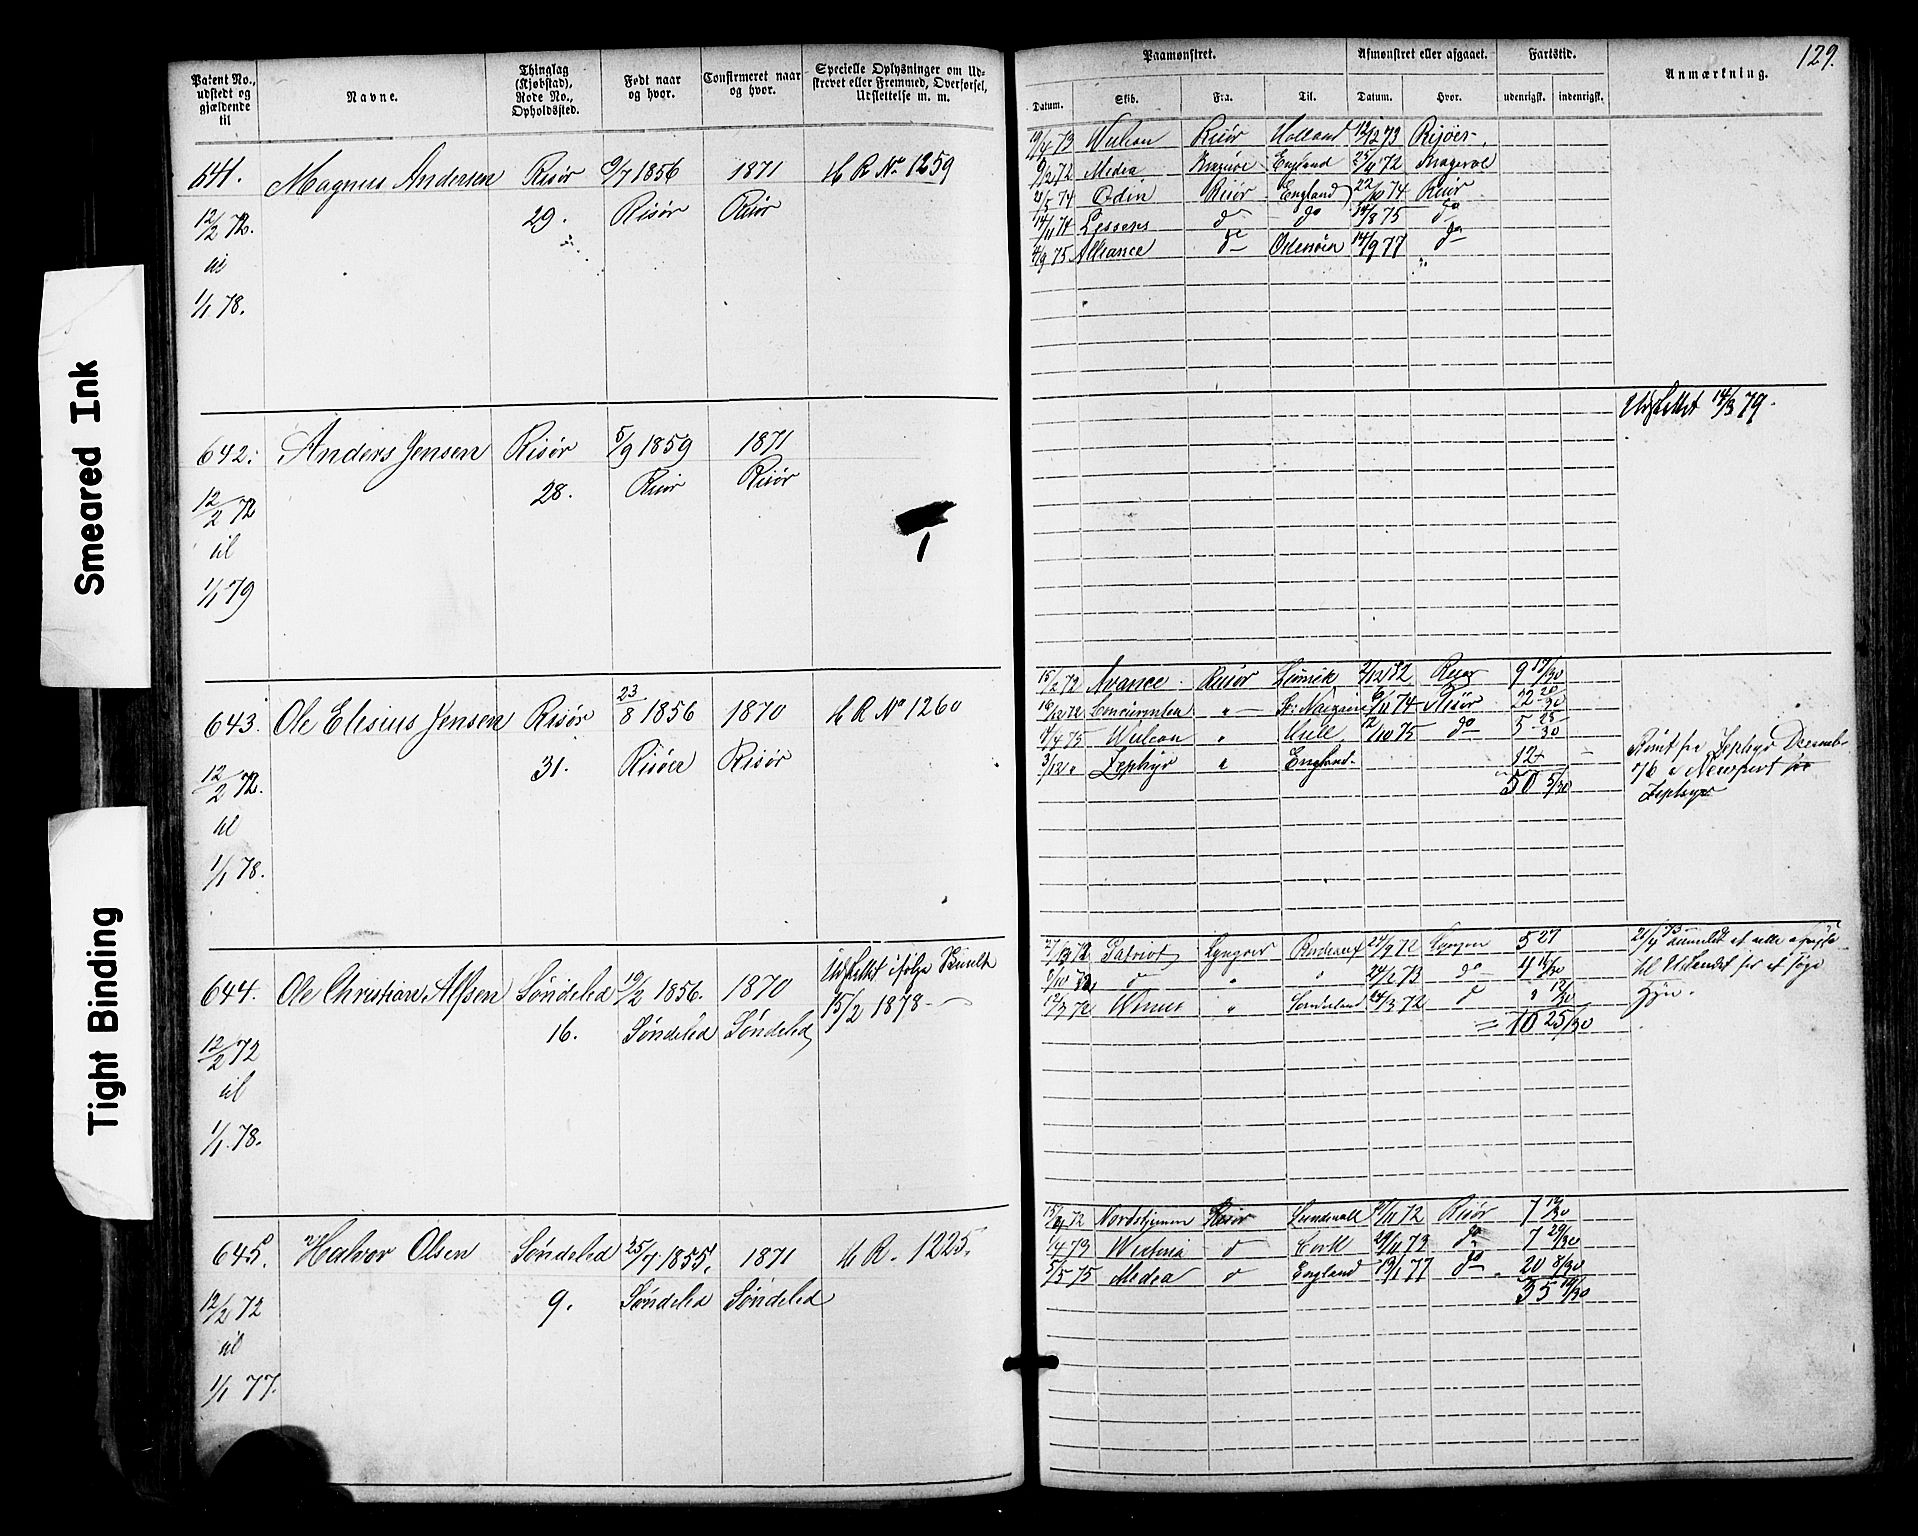 129.
Patent No., udstedt og gjældende til
Navne.
Thinglag (Kjøbstad), Rode No., Opholdssted.
Født naar og hvor.
Confirmeret naar og hvor.
Specielle Oplysninger om Udstrevet eller Fremmed, Overførsel, Udslettelse m. m.
Paamønstret.
Afmønstret eller afgaaet.
Fartstid.
Anmærkning.
Datum. Skib. Fra. Til. Datum. Hvor. udenrigsk. indenrigsk.
641. Magnus Andersen Risør 9/7 1856 1871 H R No 1259
29. Risør Risør
12/2 72.
til
1/1 78.
19/4 73 Wulcan Risør Holland 12/12 73 Risøer
9/2 72 Medea Kragerøe England 23/11 72 Kragerøe
21/5 74 Odin Risør England 22/10 74 Risør
14/11 74 Lessens do do 14/8 75 do
4/9 75 Alliance do 14/9 77 do
642. Anders Jensen Risør 5/9 1859 1871
28. Risør Risør
12/2 72
til
1/1 79
Udslettet 14/3 79.
643. Ole Elisius Jensen Risør 23/8 1856 1870 H R No 1260
31. Risøer Risør
12/2 72.
til
1/1 78.
15/2 72 Avance Risør 2/12 72 Risør 9 19/30
16/12 72 Concurrenten " 6/11 74 Risør 22 20/30
9/4 75 Wulcan " 12/10 75 do 5 25/30
3/12 " Zephyr " England. 12
50 5/30
Rømt fra Zephyr Decemb.
76 i Newport
Zephyr
644. Ole Christian Alfsen Søndeled 19/2 1856. 1870 Udslettet ifølge
15/2 1878
16. Søndeled Søndeled
12/2 72
til
1/1 78.
Patriot Lyngøer Bordeaux 24/9 72 Lyngøer 5 27
9/10 72 do " " 24/2 73 do 4 16/30
12/3 72 " Sunderland 24/3 72 do " 12/30
= 10 25/30
til Udlandet for at søge
Hyre.
645. Halvor Olsen Søndeled 25/7 1855. 1871 H R. 1225.
9. Søndeled Søndeled
12/2 72
til
1/1 77.
Nordstjernen Risør Sundsvall 72 Risør 7
Victoria do Cork 29/11 73 do 7 29/30
5/5 75 Medea do England 13/1 77 do 20 8/30
35
Smeared Ink
Tight Binding